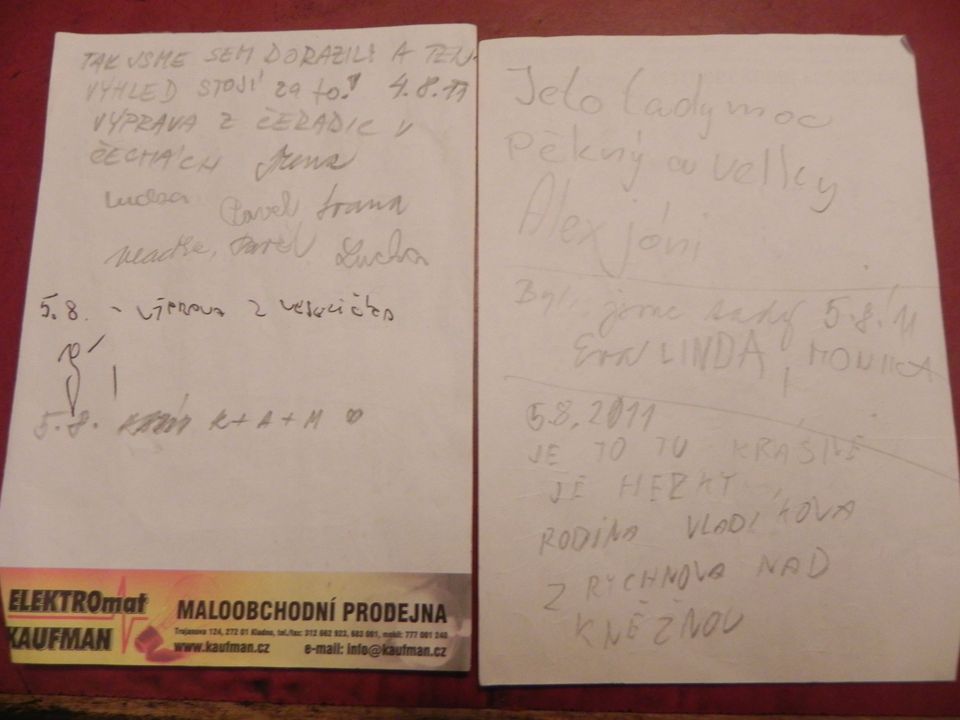 TAK JSME SEM DORAZILI A TEN
VÝHLED STOJÍ za to! 4.8.11
VÝPRAVA Z ČERADIC V
ČECHÁCH
Pavel Ivana
Pavel
5.8. - VÝPRAVA Z
5.8. K + A + M
ELEKTROmat
KAUFMAN
MALOOBCHODNÍ PRODEJNA
Trojanova 124, 272 01 Kladno, tel./fax: 312 662 923, 683 001, mobil: 777 001 240
www.kaufman.cz e-mail: info@kaufman.cz
Jeto tady moc
Pěkný a velky
Alex jóni
Byli jsme tady 5.8.11
Eva LINDA, MONIKA
5.8.2011
JE TO TU KRÁSNĚ
JE HEZKY
RODINA VLADÍKOVA
Z RYCHNOVA NAD
KNĚŽNOU